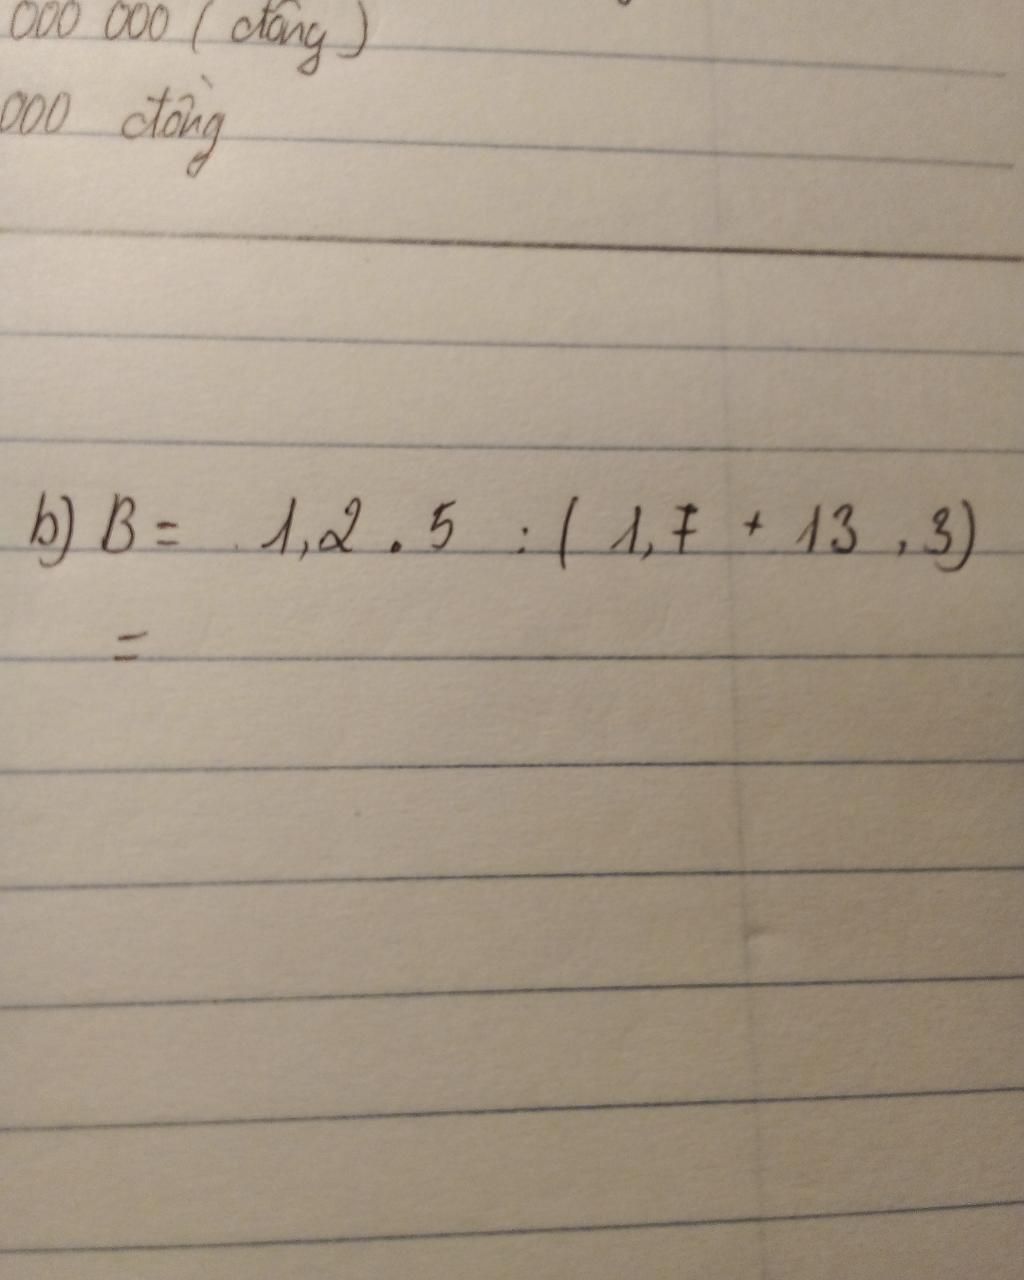 000 000 (đồng)
000 đồng
b) B = 1,2 . 5 : ( 1,7 + 13,3)
=